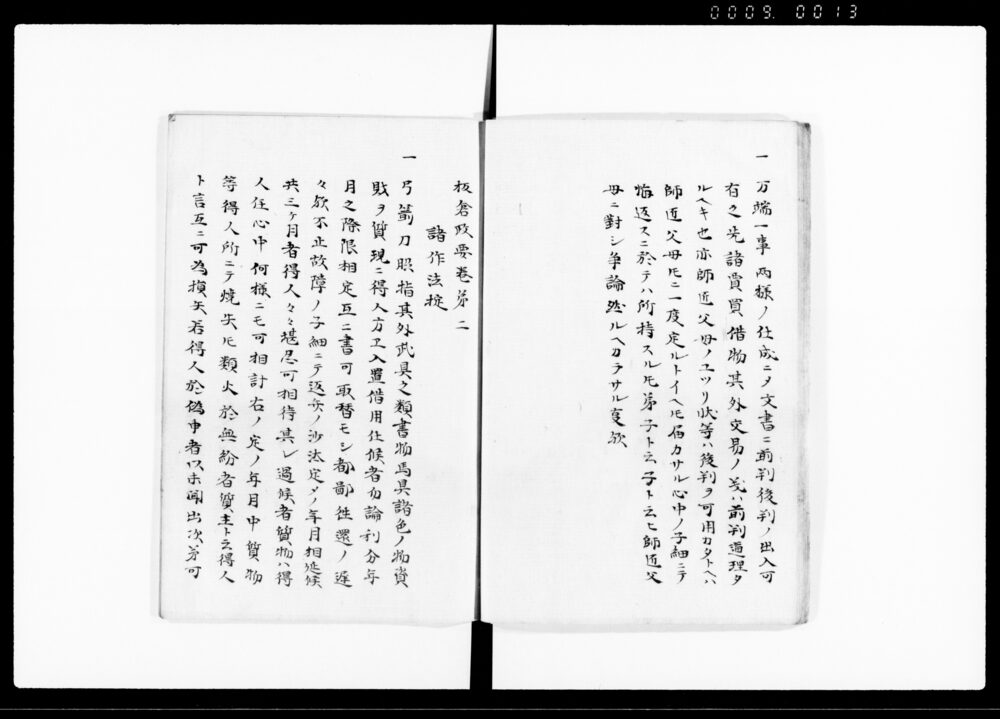 0009 0013
一 万端一事両様ノ仕成ニメ文書ニ前判後判ノ出入可
有之先諸賣買借物其外交易ノ義ハ前判道理タ
ルヘキ也亦師匠父母ノユツリ状等ハ後判ヲ可用カタトヘハ
師匠父母ヒニ一度定ルトイヘヒ届カサル心中ノ子細ニテ
悔返スニ於テハ所持スルヒ弟子ト云子ト云ヒ師匠父
母ニ對シ争論然ルヘカラサル哀欤
板倉政要卷第二
諸作法掟
一 弓箭刀脇指其外武具之類書物馬具諸色ノ物資
財ヲ質現ニ得人方ヱ入置借用仕候者勿論利分年
月之際限相定互ニ書可取替モシ都鄙往還ノ遅
々欤不止故障ノ子細ニテ返弁ノ沙汰定メノ年月相延候
共三ケ月者得人々々堪忍可相待其レ過候者質物ハ得
人任心中何様ニモ可相計右ノ定ノ年月中質物
等得人所ニテ焼失ヒ類火於無紛者質主ト云得人
ト言互ニ可為損矢若得人於偽申者以未聞出次第可